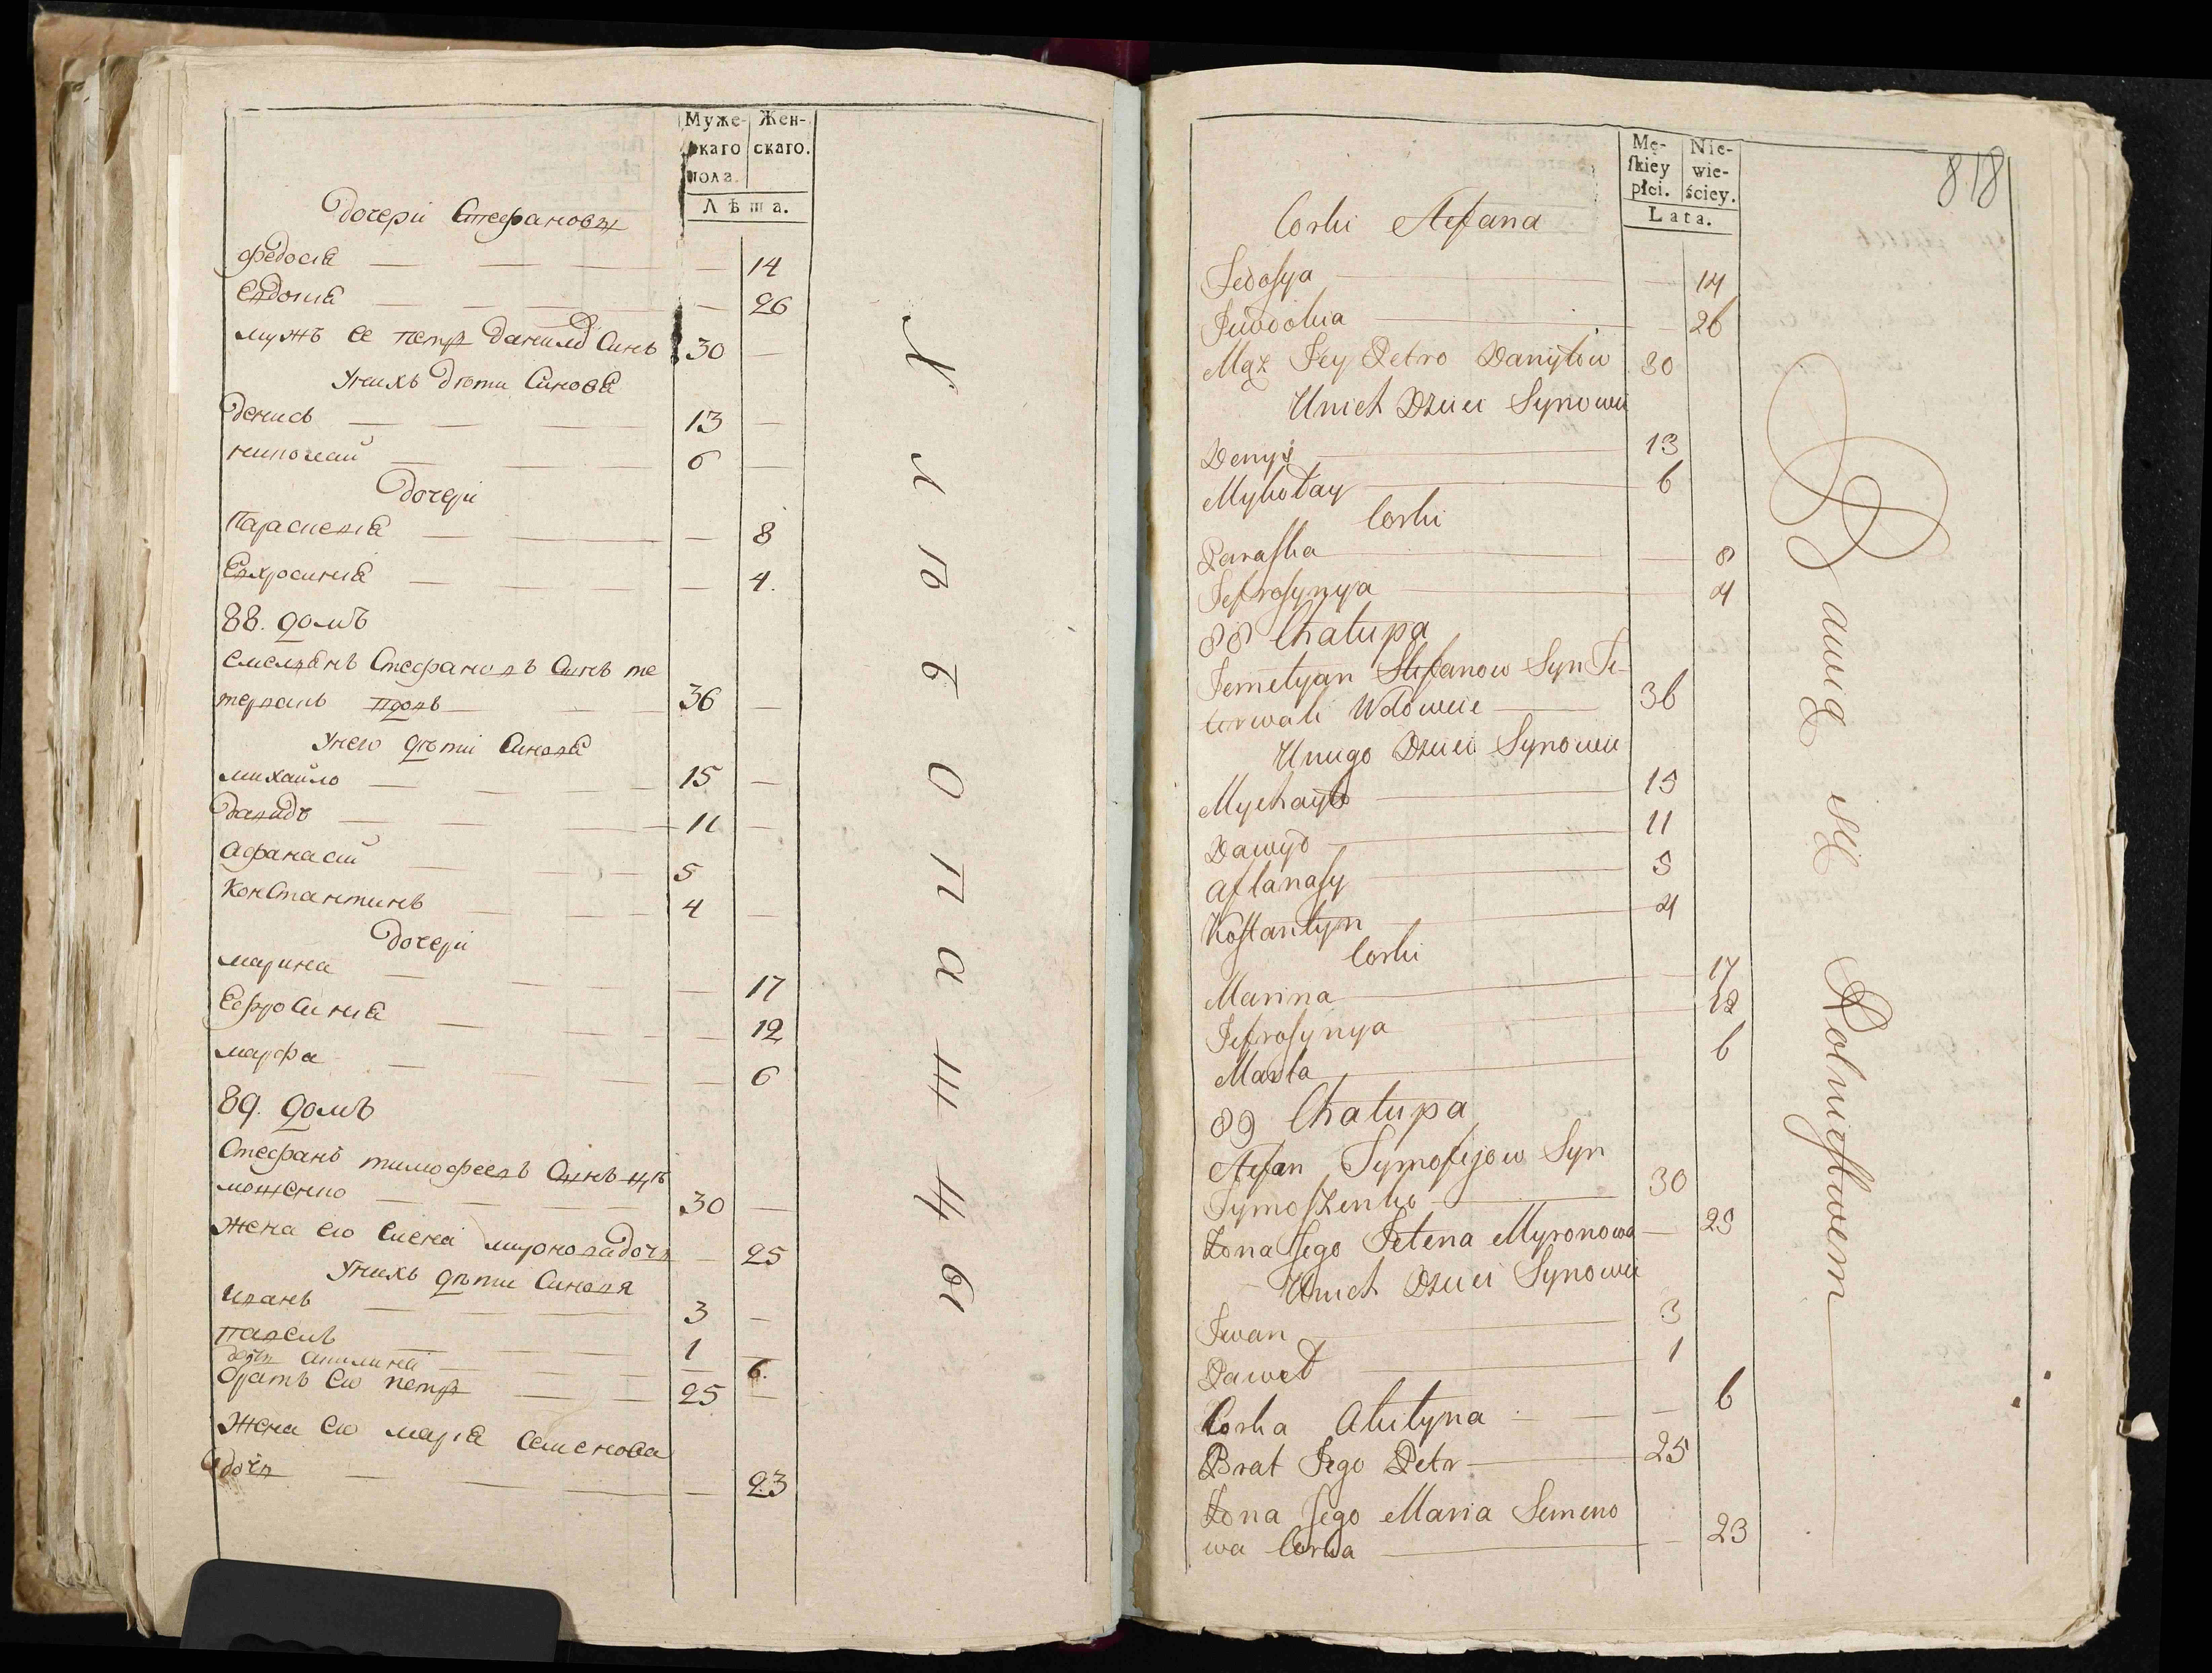 Муже-
скаго
пола.
Жен-
скаго.
Лѣта.
Дочери Стефановы
Федосія 14
Евдокія 26
мужъ ее петръ данилов Синъ 30
Унихъ дѣти Синовя
Денисъ 13
николай 6
Дочери
Параскевія 8
Евхросинія 4.
88. домъ
емелянъ Стефановъ Синъ те
терваль вдовъ 36
Унего дѣти Синовя
михайло 15
Давидъ 11
Афанасій 5
Константинъ 4
Дочери
марина 17
Ефросинія 12
марфа 6
89. домъ
Стефанъ тимофеевъ Синъ
мошенко 30
жена его Елена миронова дочь 25
Унихъ дѣти Синовя
Иванъ 3
павелъ 1
дочь акилина 6.
братъ его петръ 25
Жена его марія семенова
дочь 23
Mę-
skiey
płci.
Nie-
wie-
ściey.
Lata.
818
Corki Stefana
Fedosya 14
Juwdokia 26
Mąż Jey Petro Danyłow 30
Unich Dzieci Synowie
Denys 13
Mykołay 6
Corki
Paraska 8
Jefrosynya 4
88 Chałupa
Jemelyan Stefanow Syn Te-
terwali Wdowiec 36
Uniego Dzieci Synowie
Mychayło 15
Dawyd 11
Aftanasy 5
Kostantyn 4
Corki
Marina 17
Jefrosynya 12
Marta 6
89 Chałupa
Stefan Tymofijow Syn
Tymoszenko 30
Żona Jego Jełena Myronowa 25
Unich Dzieci Synowie
Iwan 3
Paweł 1
Corka Akilyna 6
Brat Jego Petr 25
Żona Jego Maria Semeno
wa Corka 23
Bawią się Rolnictwem